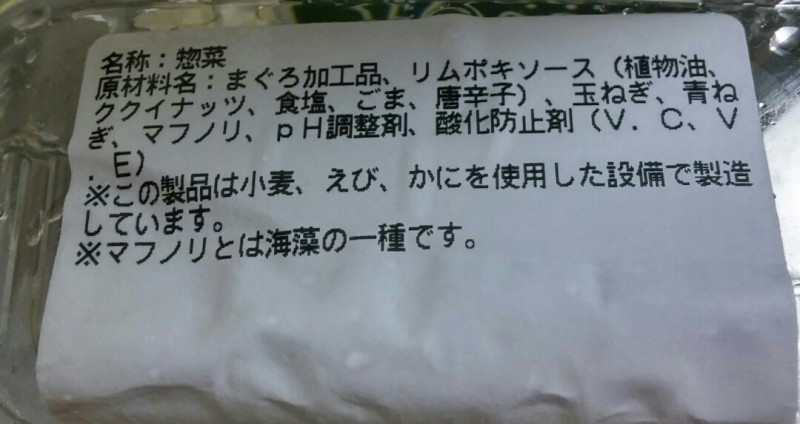 名称：惣菜
原材料名：まぐろ加工品、リムポキソース（植物油、
ククイナッツ、食塩、ごま、唐辛子）、玉ねぎ、青ね
ぎ、マフノリ、ｐＨ調整剤、酸化防止剤（Ｖ．Ｃ、Ｖ
．Ｅ）
※この製品は小麦、えび、かにを使用した設備で製造
しています。
※マフノリとは海藻の一種です。